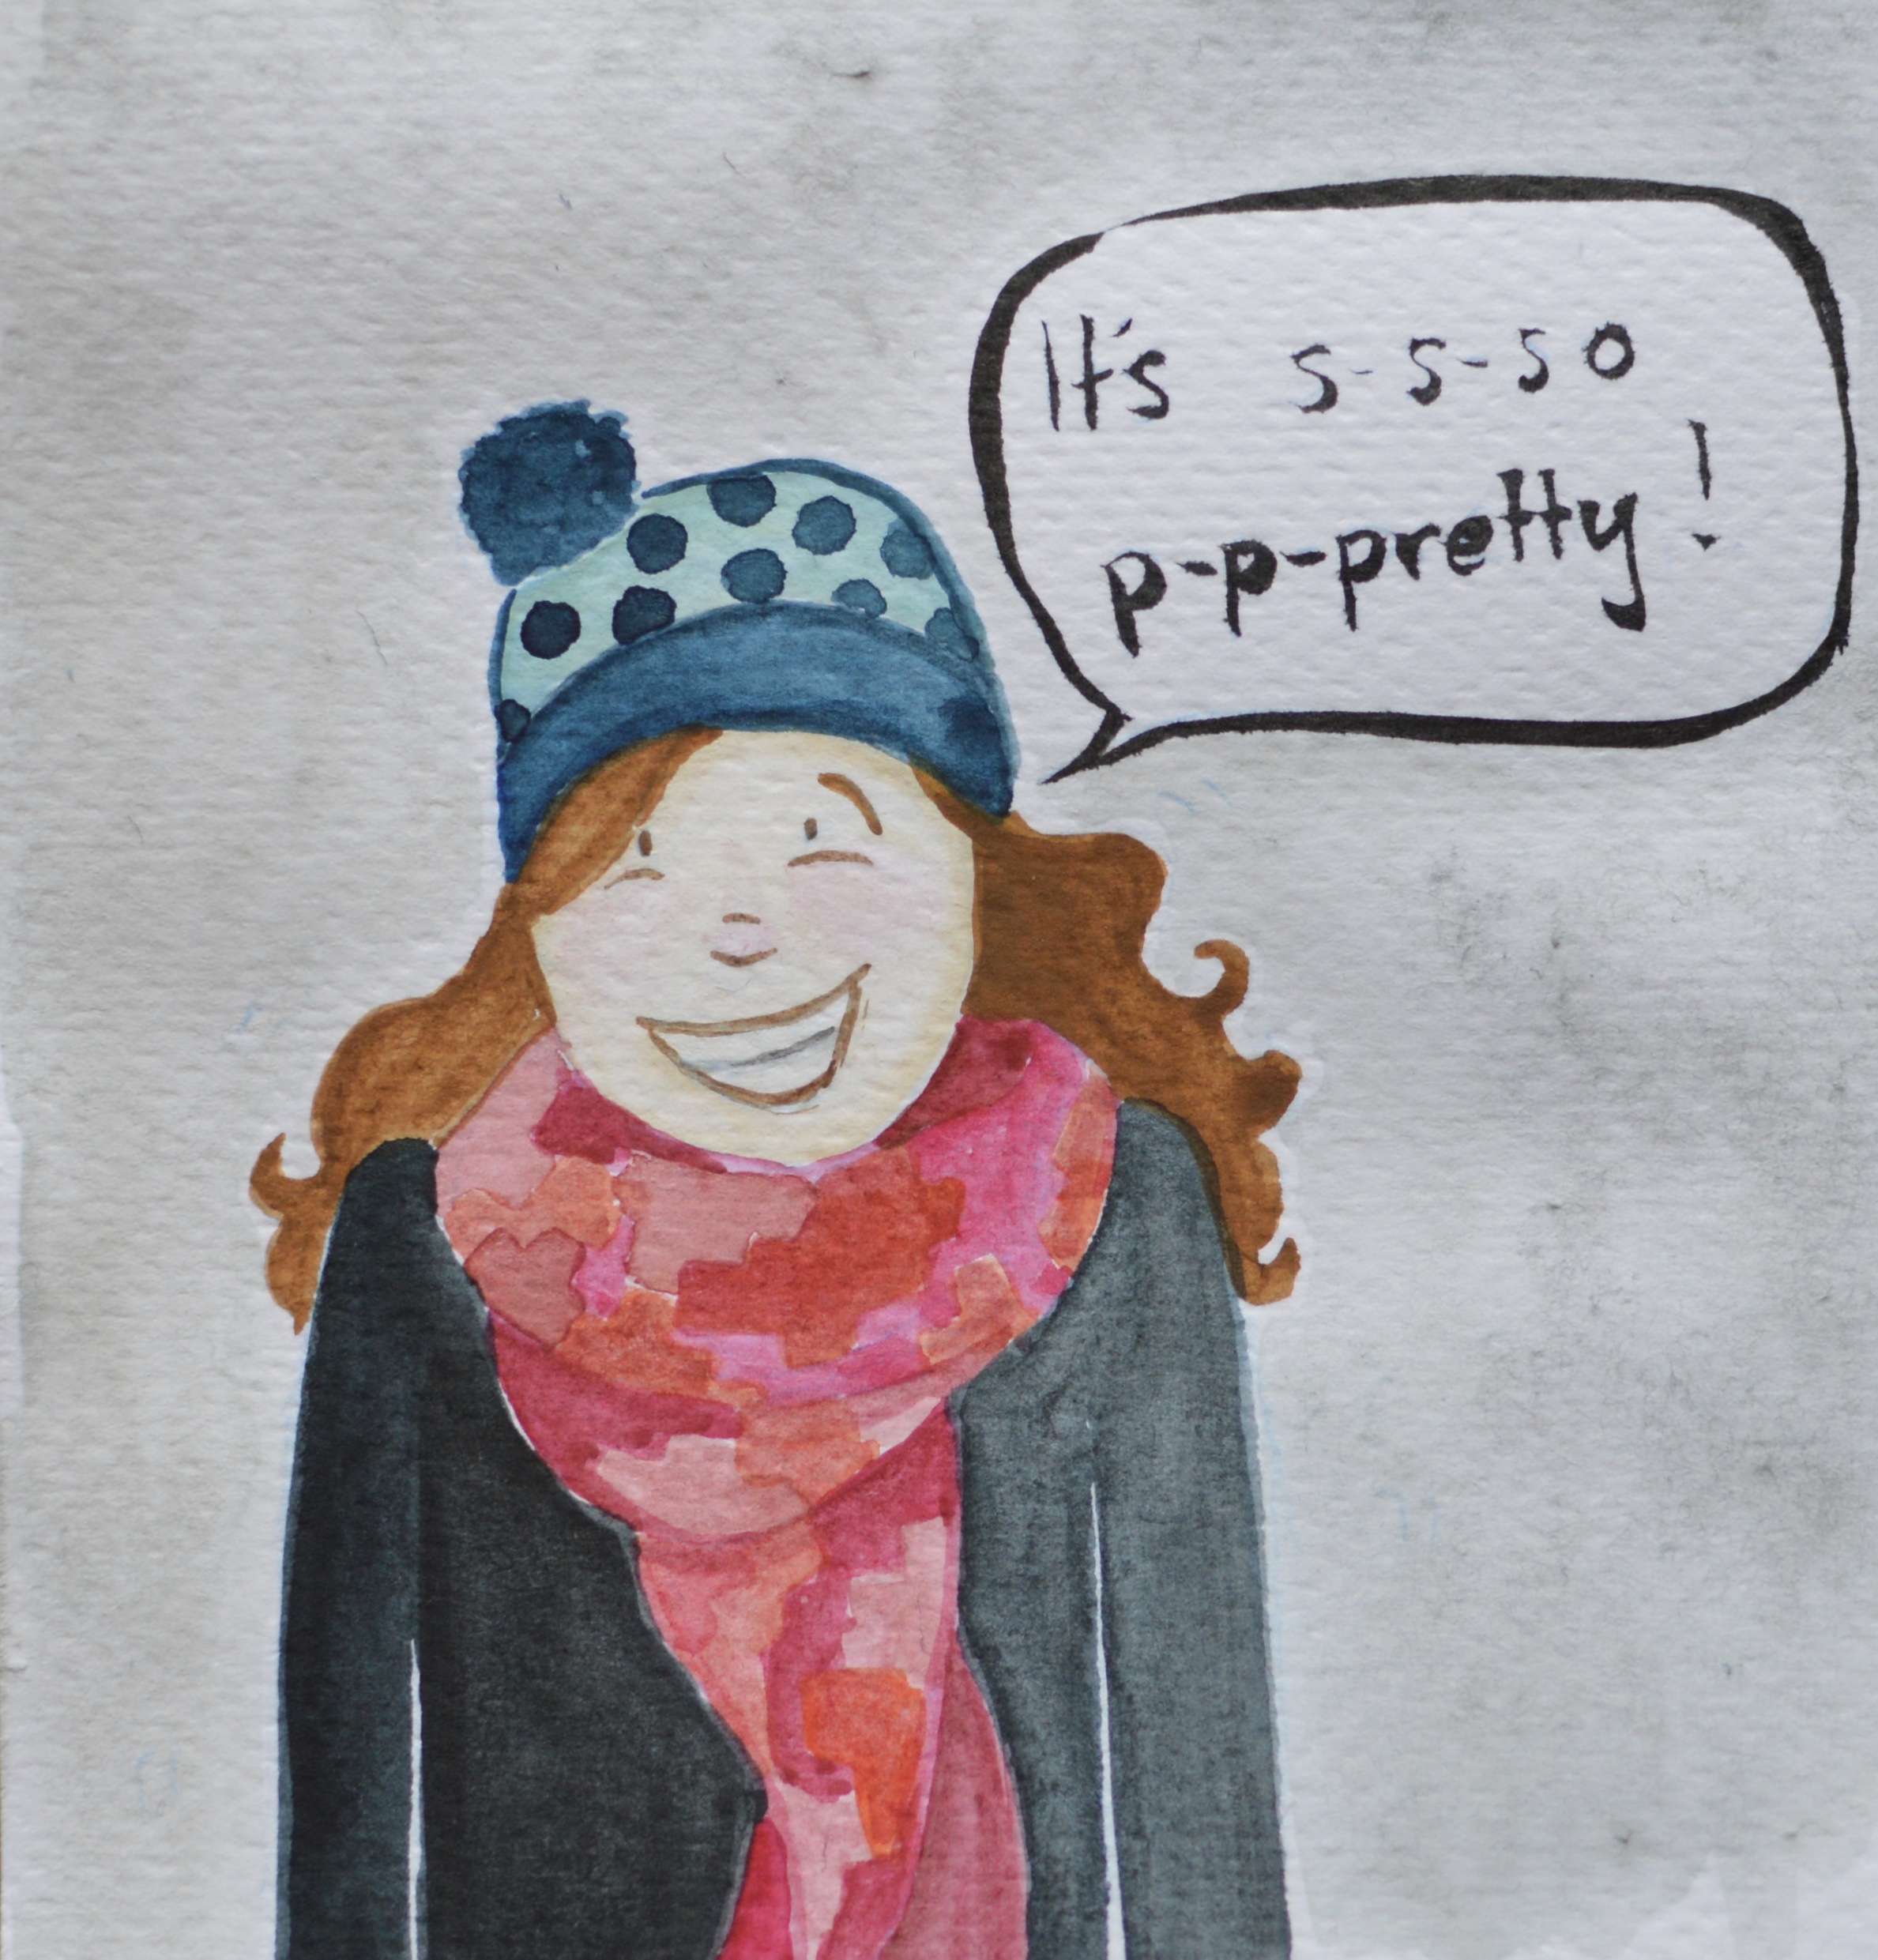 It's s-s-so
p-p-pretty!